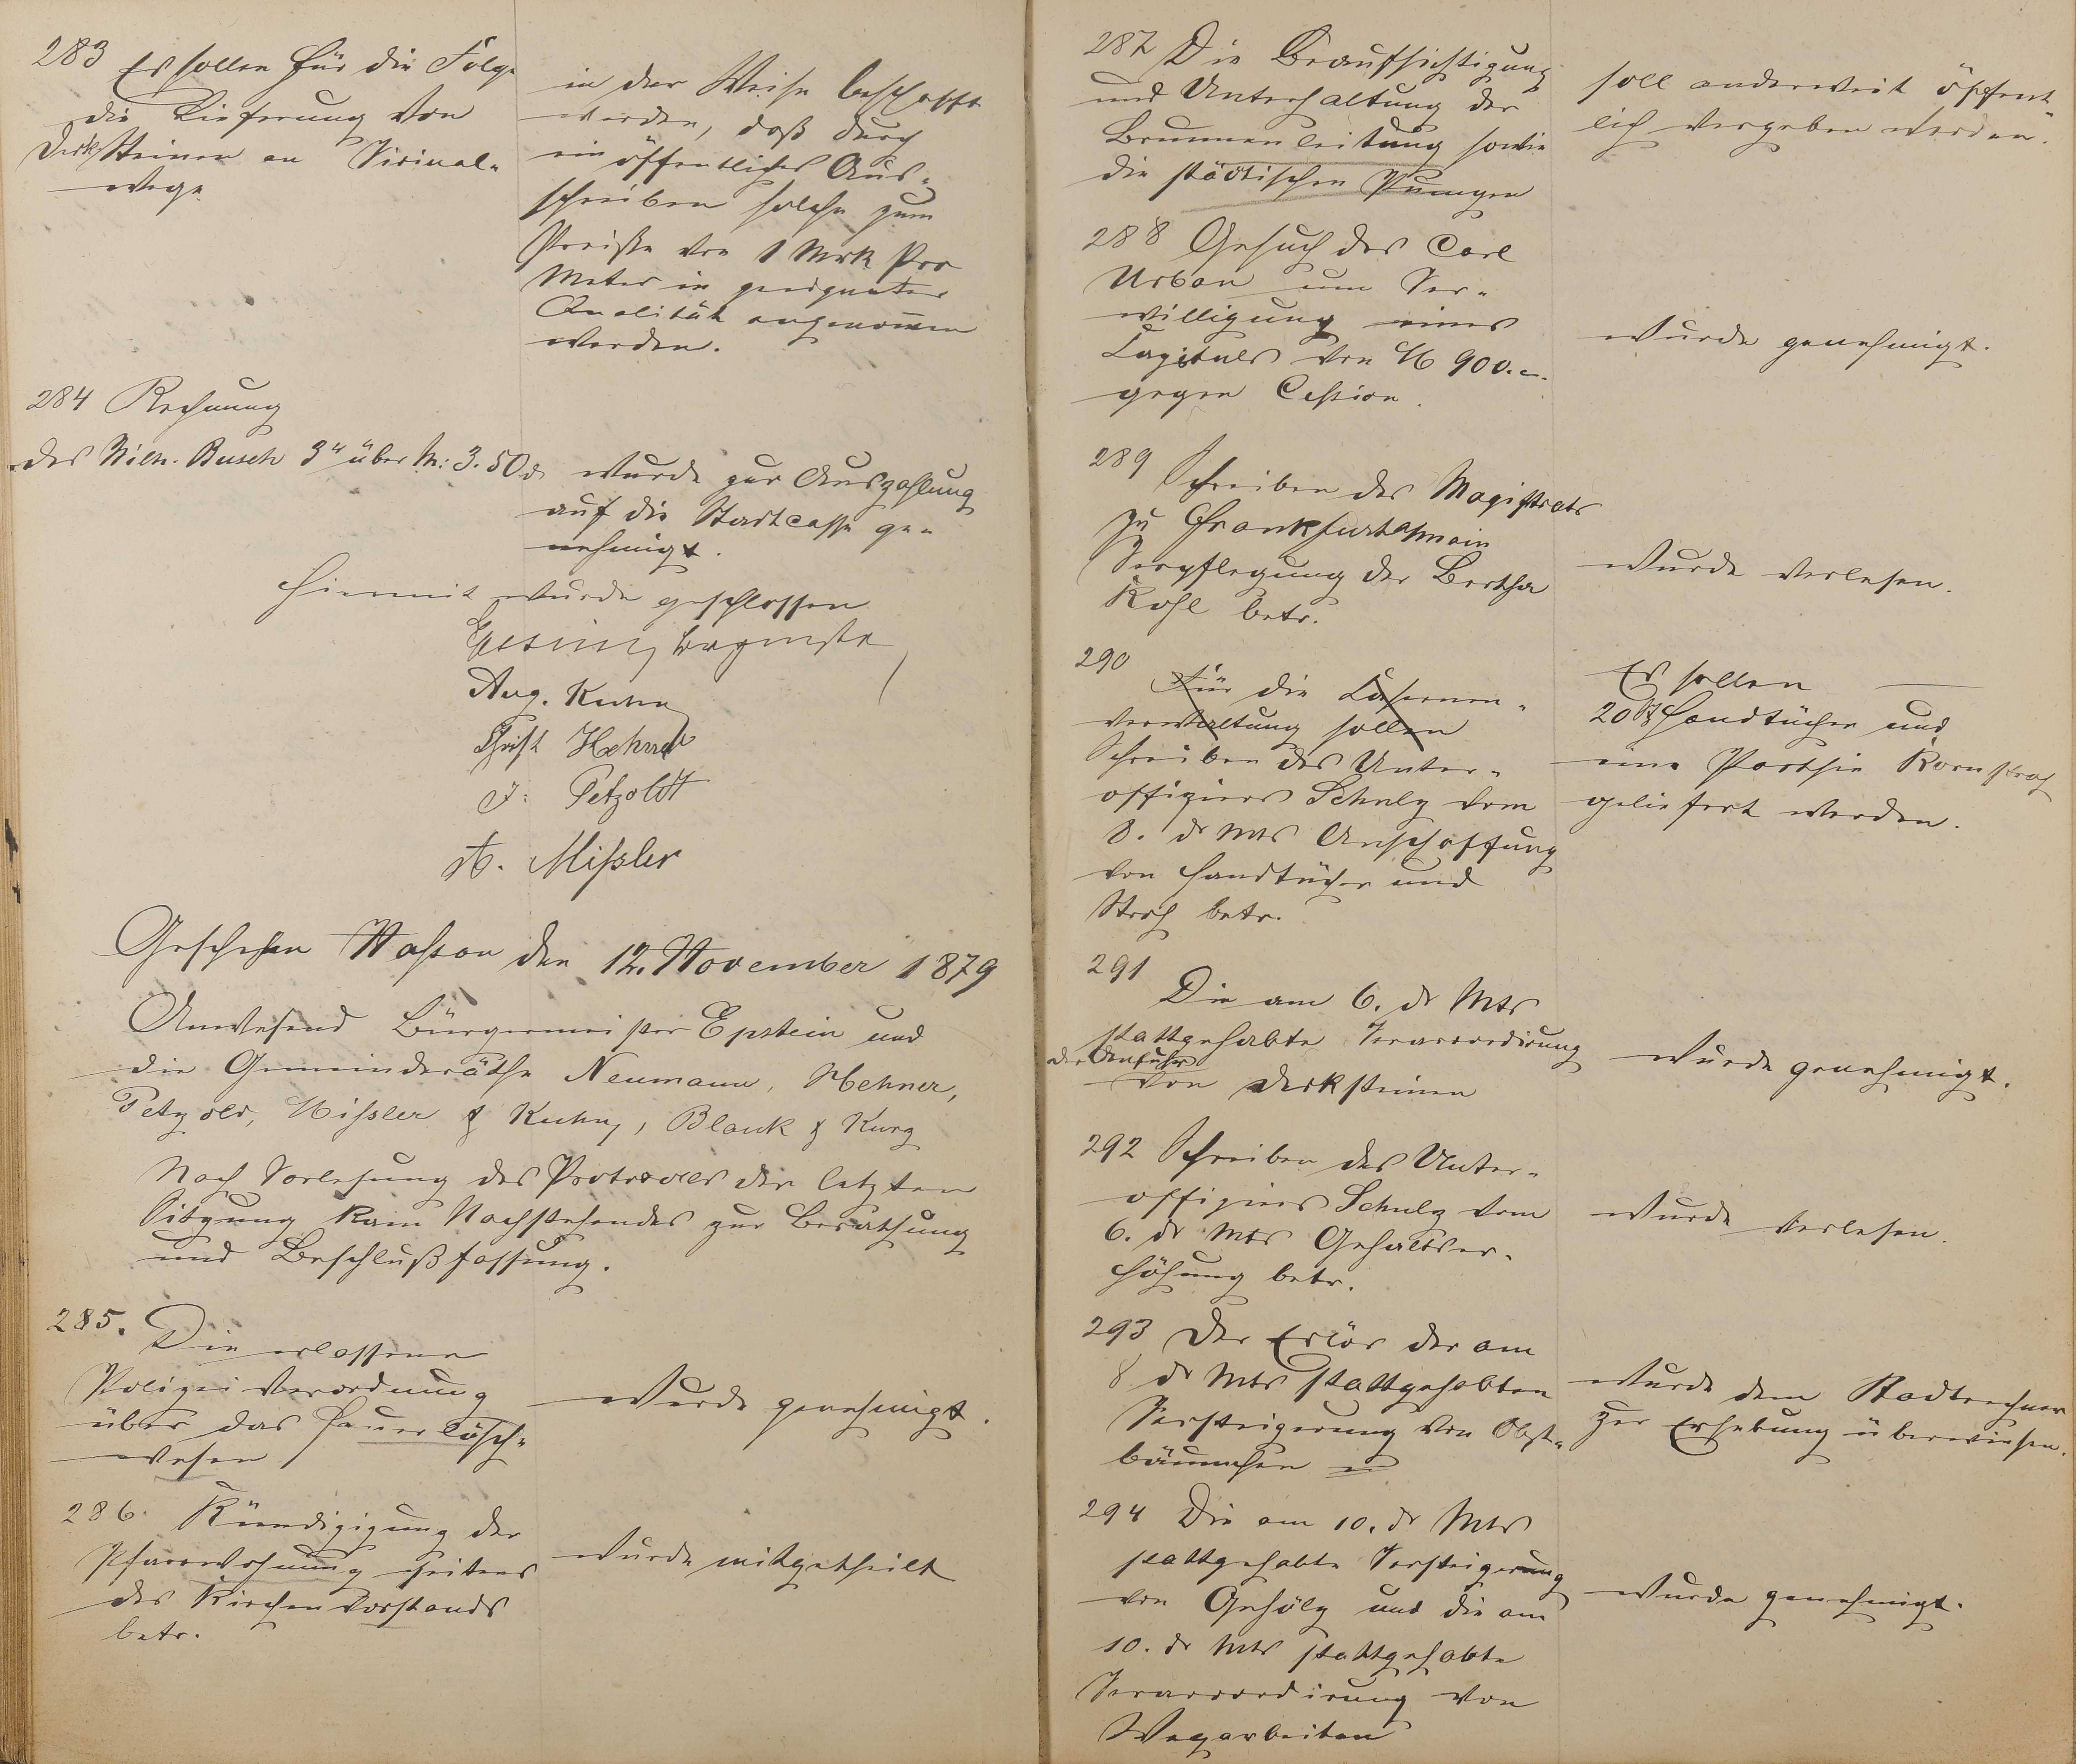 283 Es sollen für die Folge
die Lieferung von
Decksteinen an Vicinal-
wege
in der Weise beschafft
werden, daß durch
ein öffentliches Aus-
schreiben solche zum
Preiße von 1 Mrk pro
Meter in geeigneter
Qualität angenommen
werden.
284 Rechnung
des Wilh. Busch 3r über M: 3.50 d
wurde zur Auszahlung
auf die Stadtcasse ge-
nehmigt.
Hiermit wurde geschlossen
Epstein, Bürgermstr
Aug. Kuhn
Christ Hehner
J. Petzoldt
A. Mißler
Geschehen Nassau den 12. November 1879
Anwesend Bürgermeister Epstein und
die Gemeinderäthe Neumann, Hehner,
Petzold, Mißler & Kuhn, Blank & Kurz
Nach Vorlesung des Protocolls der letzten
Sitzung kam Nachstehendes zur Berathung
und Beschlußfassung.
285. Die erlassene
Polizei Verordnung
über das Feuerlösch-
wesen
wurde genehmigt.
286. Kündigigung der
Pfarrwohnung seitens
des Kirchenvorstands
betr.
wurde mitgetheilt
287 Die Beaufsichtigung
und Unterhaltung der
Brunnenleitung sowie
die städtischen Pumpen
soll anderweit öffent
lich vergeben werden.
288 Gesuch des Carl
Urban um Ver-
willigung eines
Capitals von M 900.
gegen Cession.
wurde genehmigt.
289
Schreiben des Magistrats
zu Frankfurt a/main
Verpflegung der Bertha
Kohl betr.
wurde verlesen.
290
Für die Casernen-
verwaltung sollen
Schreiben des Unter-
offiziers Schulz vom
8. ds Mts Anschaffung
von Handtücher und
Stroh betr.
Es sollen
20 St Handtücher und
eine Parthie Kornstroh
geliefert werden.
291
Die am 6. ds Mts
stattgehabte Veraccordirung
der Anfuhr
von Decksteinen
wurde genehmigt.
292 Schreiben des Unter-
offiziers Schulz vom
6. ds Mts Gehaltser-
höhung betr.
wurde verlesen.
293 Der Erlös der am
8 ds Mts stattgehabten
Versteigerung von Obst-
bäumchen
wurde dem Stadtrechner
zur Erhebung überwiesen.
294 Die am 10. ds Mts
stattgehabte Versteigerung
von Gehölz und die am
10. ds Mts stattgehabte
Veraccordirung von
Wegarbeiten
wurde genehmigt.